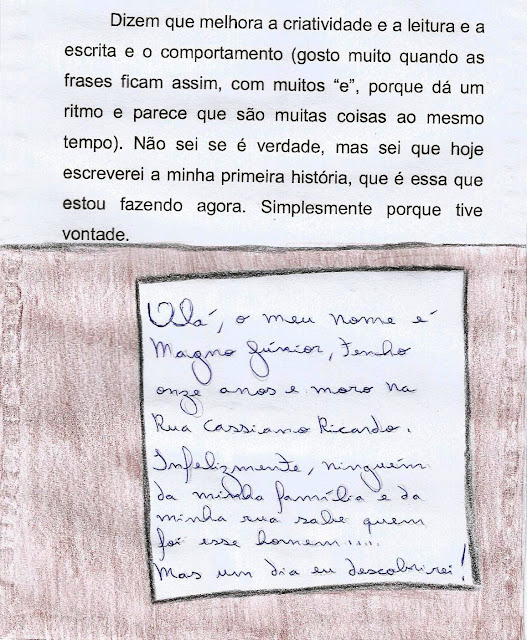 Dizem que melhora a criatividade e a leitura e a
escrita e o comportamento (gosto muito quando as
frases ficam assim, com muitos “e”, porque dá um
ritmo e parece que são muitas coisas ao mesmo
tempo). Não sei se é verdade, mas sei que hoje
escreverei a minha primeira história, que é essa que
estou fazendo agora. Simplesmente porque tive
vontade.
Olá, o meu nome é
Magno Júnior, tenho
onze anos e moro na
Rua Cassiano Ricardo.
Infelizmente, ninguém
da minha família e da
minha rua sabe quem
foi esse homem.....
Mas um dia eu descobrirei!